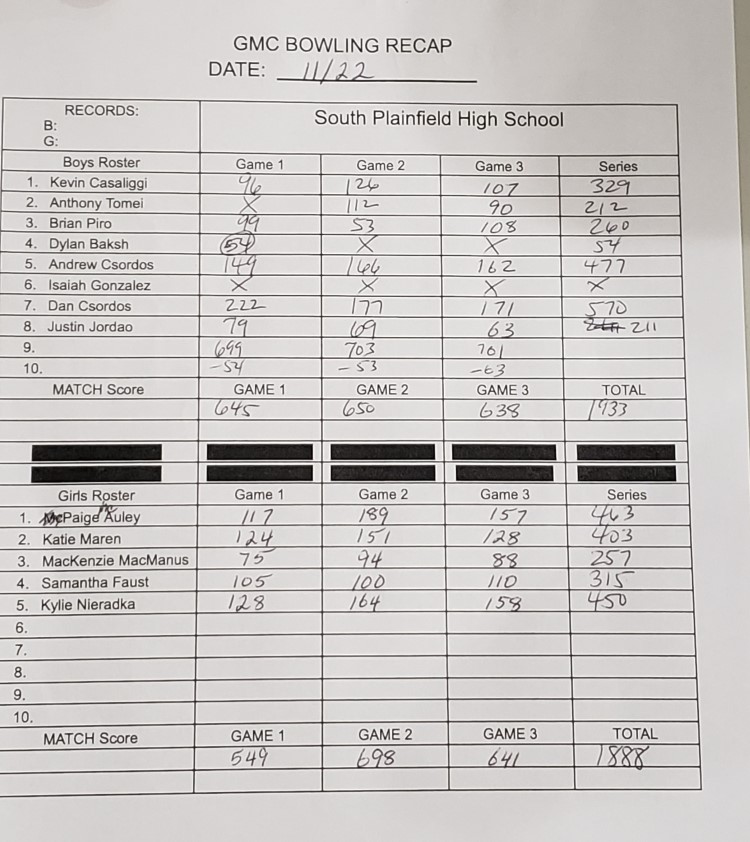 GMC BOWLING RECAP
DATE: 11/22
RECORDS:
B:
G:
South Plainfield High School
Boys Roster Game 1 Game 2 Game 3 Series
1. Kevin Casaliggi 96 126 107 329
2. Anthony Tomei X 112 90 212
3. Brian Piro 99 53 108 260
4. Dylan Baksh 54 X X 54
5. Andrew Csordos 149 166 162 477
6. Isaiah Gonzalez X X X X
7. Dan Csordos 222 177 171 570
8. Justin Jordao 79 69 63 211
9. 699 703 701
10. -54 -53 -63
MATCH Score GAME 1 GAME 2 GAME 3 TOTAL
645 650 638 1933
Girls Roster Game 1 Game 2 Game 3 Series
1. Paige McAuley 117 189 157 463
2. Katie Maren 124 151 128 403
3. MacKenzie MacManus 75 94 88 257
4. Samantha Faust 105 100 110 315
5. Kylie Nieradka 128 164 158 450
6.
7.
8.
9.
10.
MATCH Score GAME 1 GAME 2 GAME 3 TOTAL
549 698 641 1888